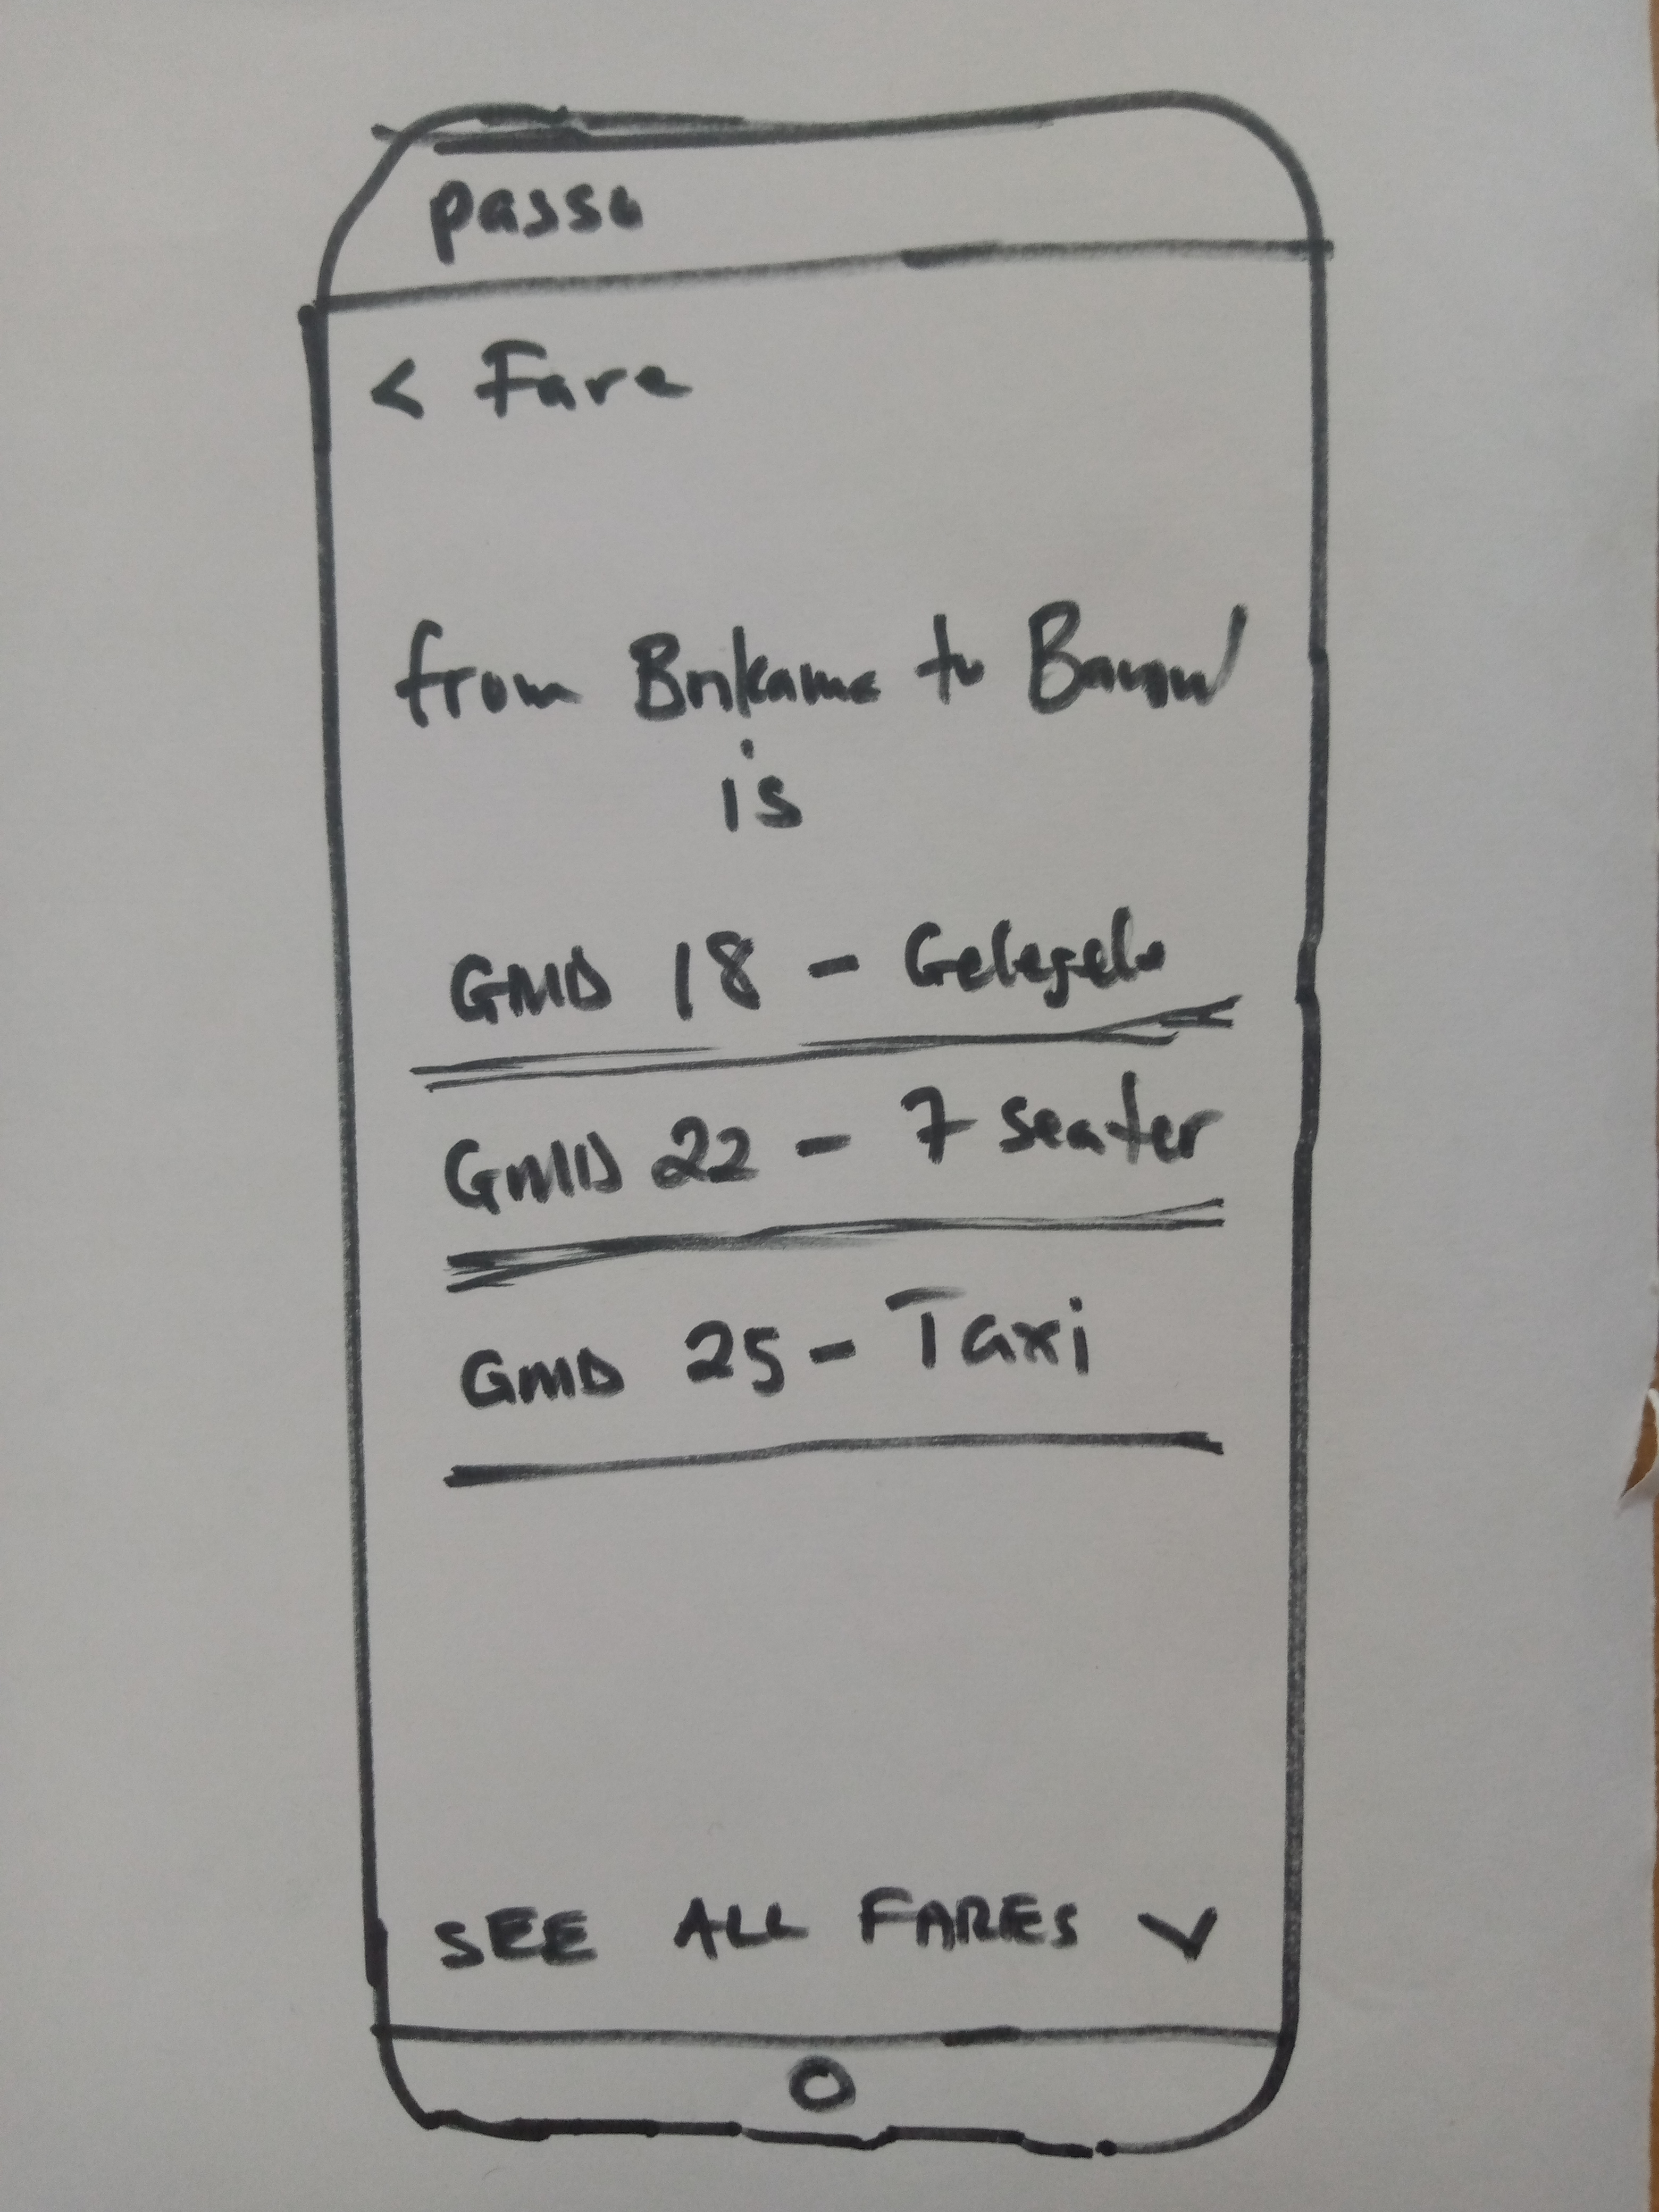 passo
< Fare
from Brikama to Banjul
is
GMD 18 - Gelegele
GMD 22 - 7 seater
GMD 25 - Taxi
SEE ALL FARES